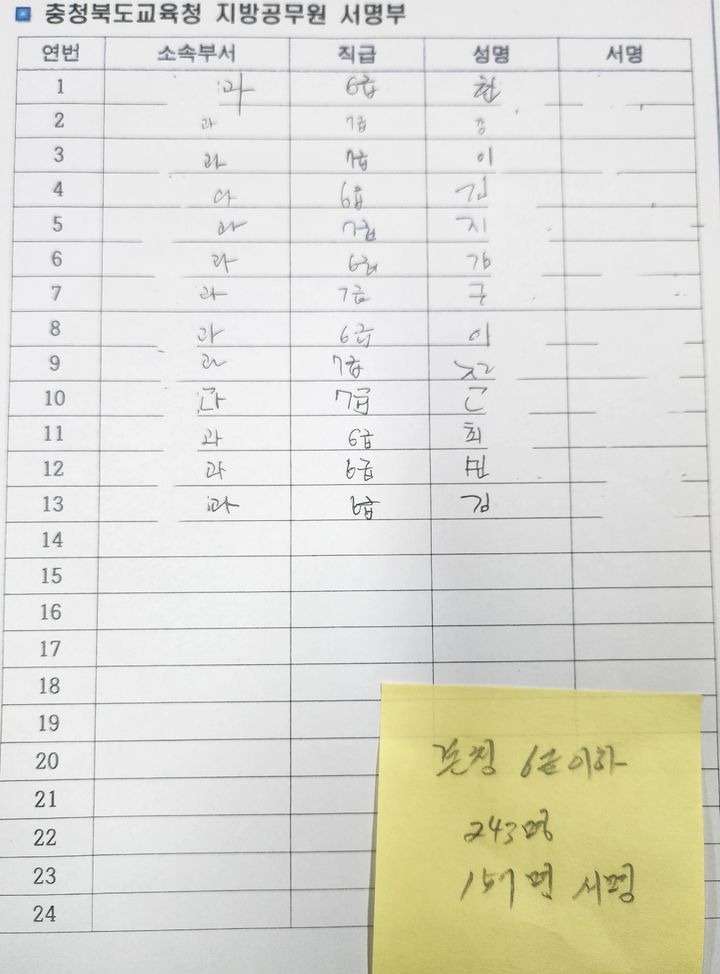 충청북도교육청 지방공무원 서명부
연번 소속부서 직급 성명 서명
1 과 6급 한
2 과 7급
3 과 7급 이
4 과 6급 김
5 과 7급 지
6 과 6급 김
7 과 7급
8 과 6급 이
9 과 7급
10 과 7급
11 과 6급 최
12 과 6급
13 과 6급 김
14
15
16
17
18
19
20
21
22
23
24
본청 6급이하
243명
157명 서명